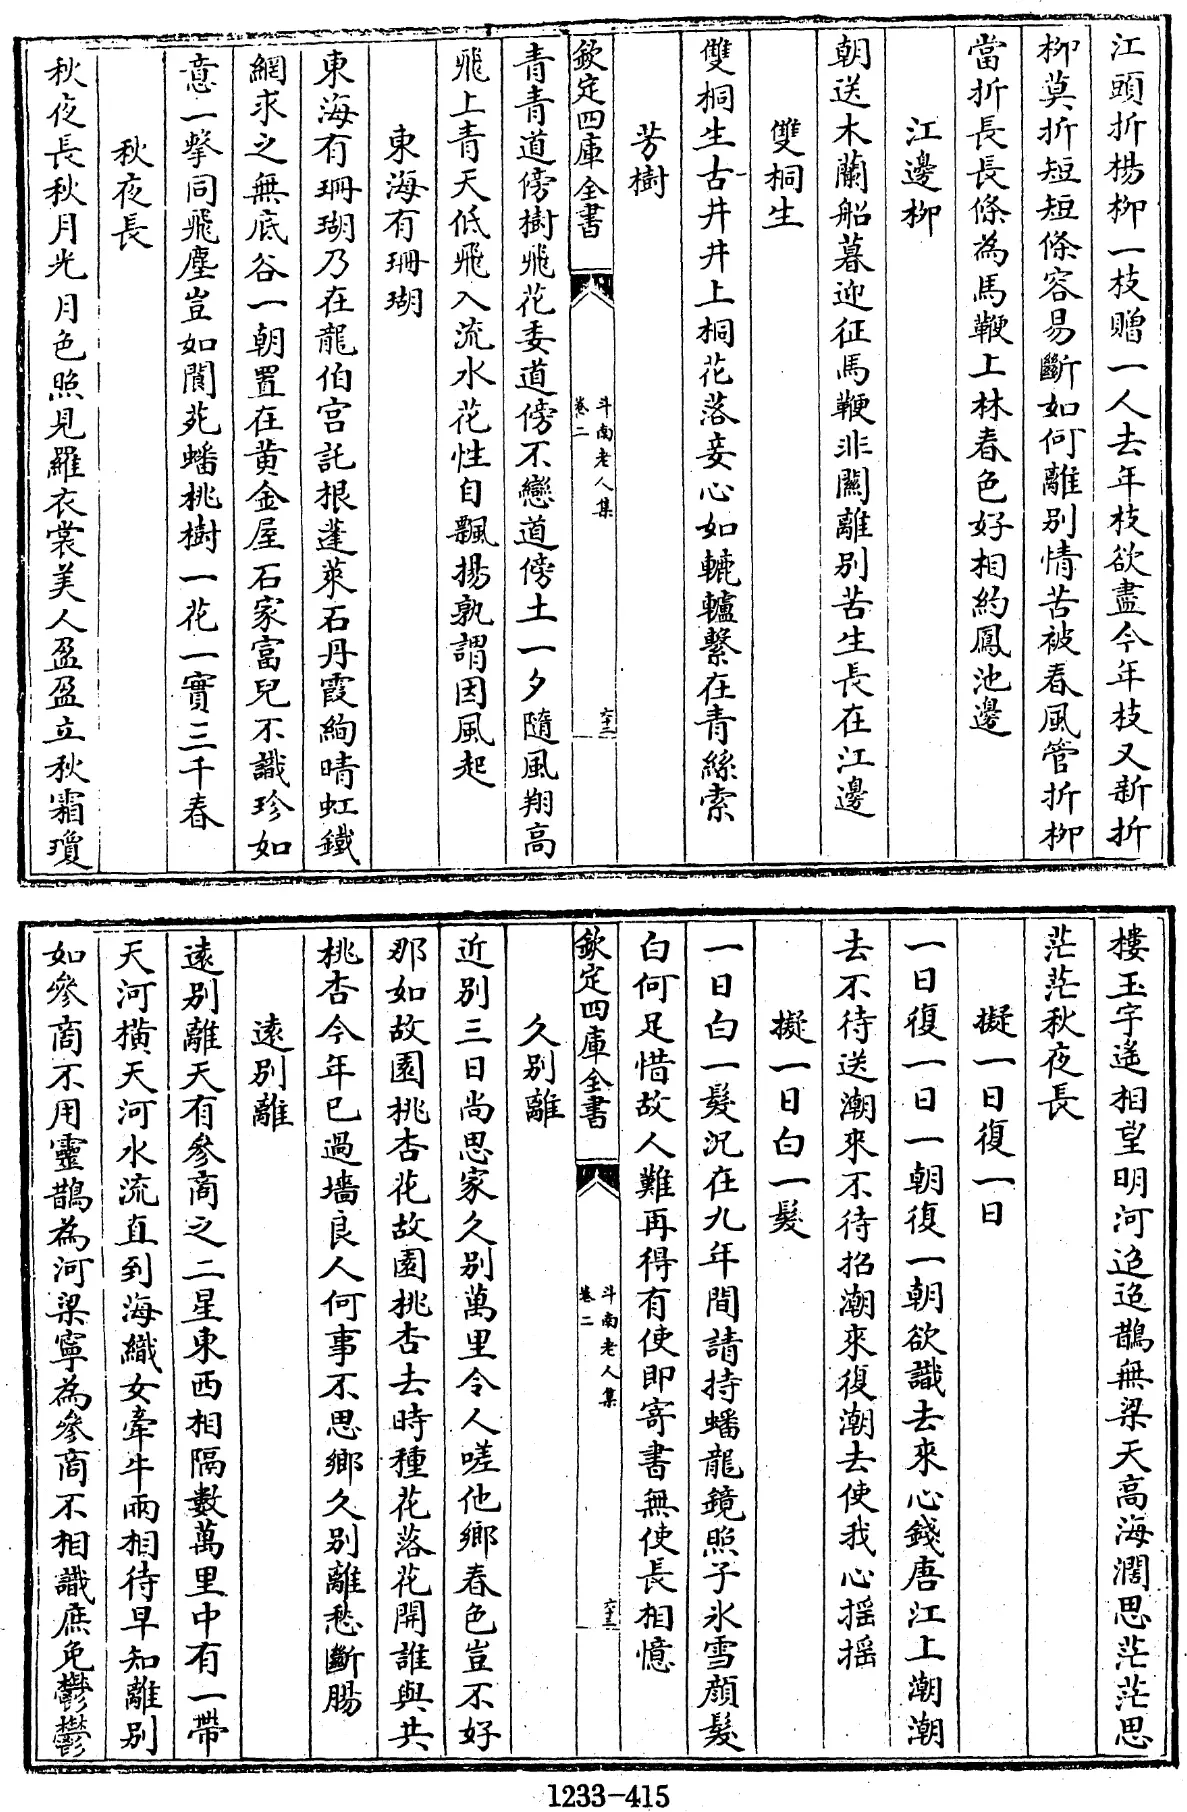 江頭折楊柳一枝贈一人去年枝欲盡今年枝又新折
柳莫折短短條容易斷如何離別情苦被春風管折柳
當折長長條為馬鞭上林春色好相約鳳池邊
江邊柳
朝送木蘭船暮迎征馬鞭非關離別苦生長在江邊
雙桐生
雙桐生古井井上桐花落妾心如轆轤繫在青絲索
芳樹
欽定四庫全書
斗南老人集
卷二
青青道傍樹飛花委道傍不戀道傍土一夕隨風翔高
飛上青天低飛入流水花性自飄揚孰謂因風起
東海有珊瑚
東海有珊瑚乃在龍伯宮託根蓬萊石丹霞絢晴虹鐵
網求之無底谷一朝置在黄金屋石家富兒不識珍如
意一擊同飛塵豈如閬苑蟠桃樹一花一實三千春
秋夜長
秋夜長秋月光月色照見羅衣裳美人盈盈立秋霜瓊
樓玉宇遙相望明河迢迢鵲無梁天高海濶思茫茫思
茫茫秋夜長
擬一日復一日
一日復一日一朝復一朝欲識去來心錢唐江上潮潮
去不待送潮來不待招潮來復潮去使我心揺揺
擬一日白一髮
一日白一髮況在九年間請持蟠龍鏡照子氷雪顔髮
白何足惜故人難再得有使即寄書無使長相憶
欽定四庫全書
斗南老人集
卷二
久別離
近別三日尚思家久別萬里令人嗟他鄉春色豈不好
那如故園桃杏花故園桃杏去時種花落花開誰與共
桃杏今年已過墻良人何事不思鄉久別離愁斷腸
遠別離
遠別離天有參商之二星東西相隔數萬里中有一帶
天河横天河水流直到海織女牽牛兩相待早知離別
如參商不用靈鵲為河梁寧為參商不相識庶免鬱鬱
1233-415